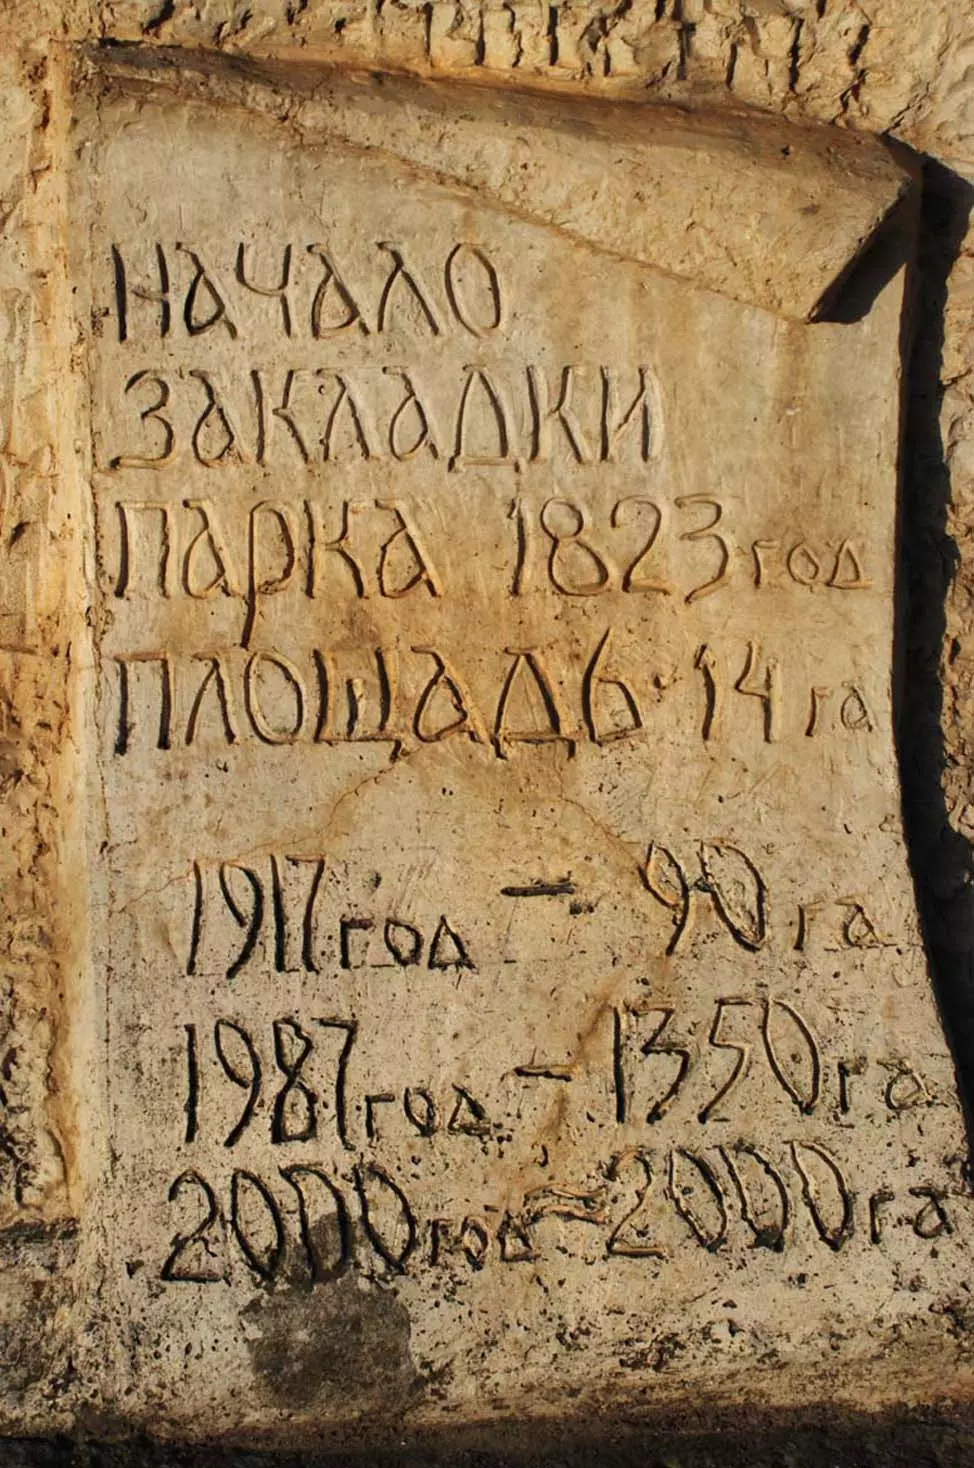 начало
закладки
парка 1823 год
площадь 14 га
1917 год – 90 га
1987 год – 1350 га
2000 год – 2000 га